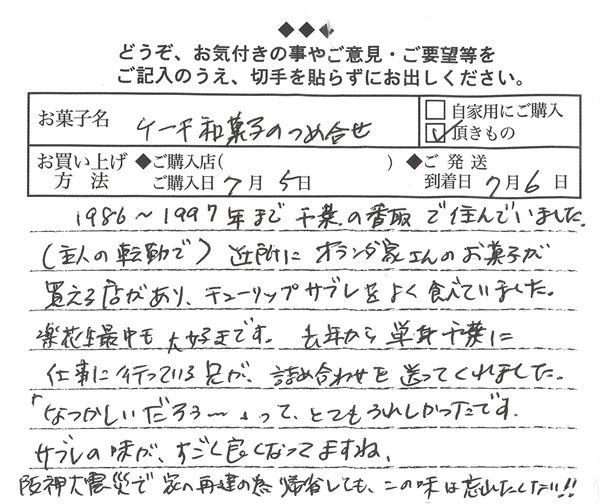 ◆◆◆
どうぞ、お気付きの事やご意見・ご要望等を
ご記入のうえ、切手を貼らずにお出しください。
お菓子名 ケーキ和菓子のつめ合せ □自家用にご購入
☑頂きもの
お買い上げ ◆ご購入店( ) ◆ご発送
方法 ご購入日7月5日 到着日7月6日
1986〜1997年まで千葉の番取で住んでいました。
(主人の転勤で)近所にオランダ家さんのお菓子が
買える店があり、チューリップサブレをよく食べていました。
楽花生最中も大好きです。去年から単身千葉に
仕事に行っている兄が、詰め合わせを送ってくれました。
"なつかしいだろ〜〃って、とてもうれしかったです。
サブレの味が、すごく良くなってますね、
阪神大震災で家の再建の為帰省しても、この味は忘れたくない!!